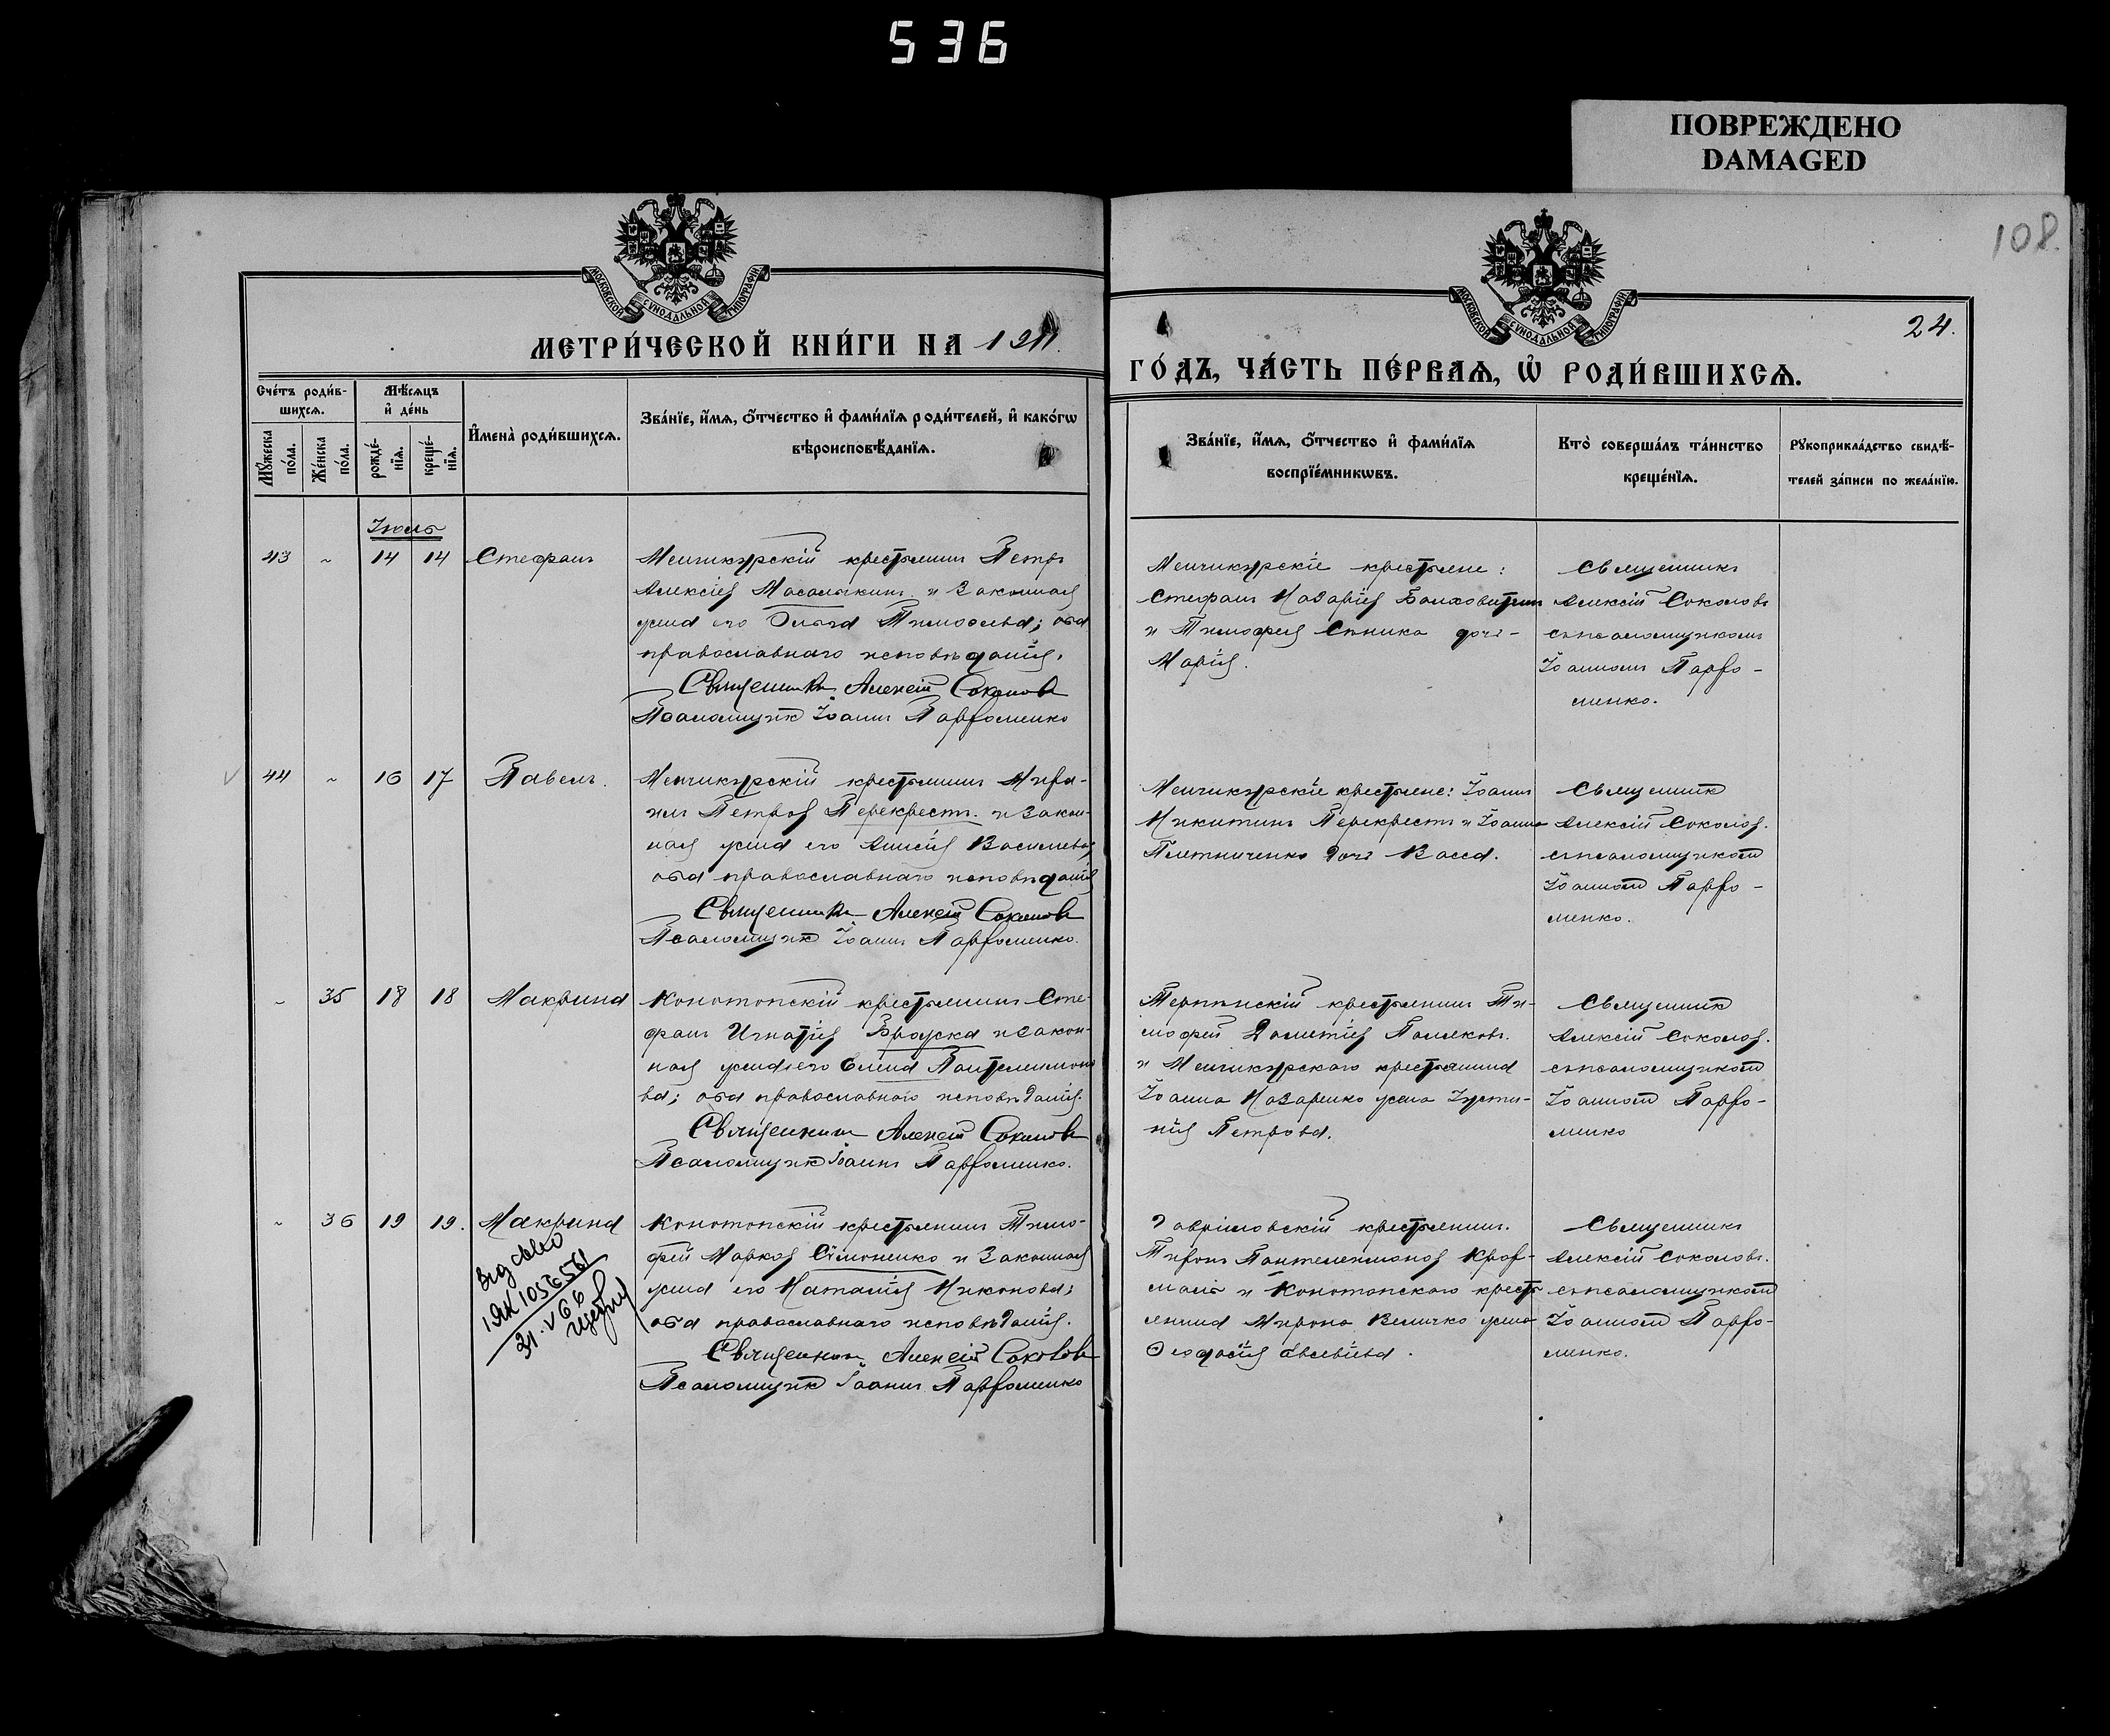 536
ПОВРЕЖДЕНО
DAMAGED
108.
МОСКОВСКОЙ СѴНОДАЛЬНОЙ ТИПОГРАФІИ
МОСКОВСКОЙ СѴНОДАЛЬНОЙ ТИПОГРАФІИ
24.
МЕТРИ́ЧЕСКОЙ КНИ́ГИ НА 1911
ГО́ДЪ, ЧА́СТЬ ПЕ́РВАѦ, Ѡ҆ РОДИ́ВШИХСѦ.
Сче́тъ роди́в-
шихсѧ.
Мѣ́сѧцъ
и҆ де́нь
Мꙋ́жеска
по́ла.
Же́нска
по́ла.
рожде́-
нїѧ.
креще́-
нїѧ.
И҆мена̀ роди́вшихсѧ.
Зва́нїе, и҆́мѧ, ѻ҆́тчество и҆ фами́лїѧ роди́телей, и҆ како́гѡ
вѣроисповѣ́данїѧ.
Зва́нїе, и҆́мѧ, ѻ҆́тчество и҆ фами́лїѧ
воспрїе́мникѡвъ.
Кто̀ соверша́лъ та́инство
креще́нїѧ.
Рꙋкоприкла́дство свидѣ́-
телей за́писи по жела́нїю.
Іюль
43 ~ 14 14 Стефанъ
Менчикурскій крестьянинъ Петръ
Алексіев Масалыкинъ и законная
жена его Ольга Тимофеева; оба
православнаго исповѣданія.
Священникъ Алексій Соколовъ
Псаломщикъ Іоаннъ Парфоменко
Менчикурскіе крестьяне:
Стефанъ Назаріев Болховитин
и Тимофея Синика дочь-
Марія.
Священникъ
Алексій Соколовъ
съ псаломщикомъ
Іоанномъ Парфо-
менко.
44 ~ 16 17 Павелъ.
Менчикурскій крестьянинъ Миха-
илъ Петров Перекрестъ и закон-
ная жена его Анисія Васильева
оба православнаго исповѣданія
Священникъ Алексій Соколовъ
Псаломщикъ Іоаннъ Парфоменко.
Менчикурскіе крестьяне: Іоаннъ
Никитинъ Перекрестъ и Іоанна
Плетниченко дочь Васса.
Священникъ
Алексій Соколов.
съ псаломщикомъ
Іоанномъ Парфо-
менко.
~ 35 18 18 Макрина
Конотопскій крестьянинъ Сте-
фанъ Игнатіев и закон-
ная жена его Елена Пантелеимоно
ва; оба православнаго исповѣданія.
Священникъ Алексій Соколовъ
Псаломщикъ Іоаннъ Парфоменко.
Терпѣнскій крестьянинъ Ти-
мофей Дометіев Поляковъ.
и Менчикурскаго крестьянина
Іоанна Назаренко жена Іусти-
нія Петрова.
Священникъ
Алексій Соколов.
съ псаломщикомъ
Іоанномъ Парфо-
менко
~ 36 19 19. Макрина
Конотопскій крестьянинъ Тимо-
фей Марков Симоненко и законная
жена его Наталія Никонова;
оба православнаго исповѣданія.
Священникъ Алексій Соколовъ
Псаломщикъ Іоаннъ Парфоменко
Гавриловскій крестьянинъ.
Тихонъ Пантелеимонов
и Конотопскаго кресть
янина Мирона Величко жена
Ѳеодосія
Священникъ
Алексій Соколовъ.
съ псаломщикомъ
Іоанномъ Парфо-
менко.
31.V 66